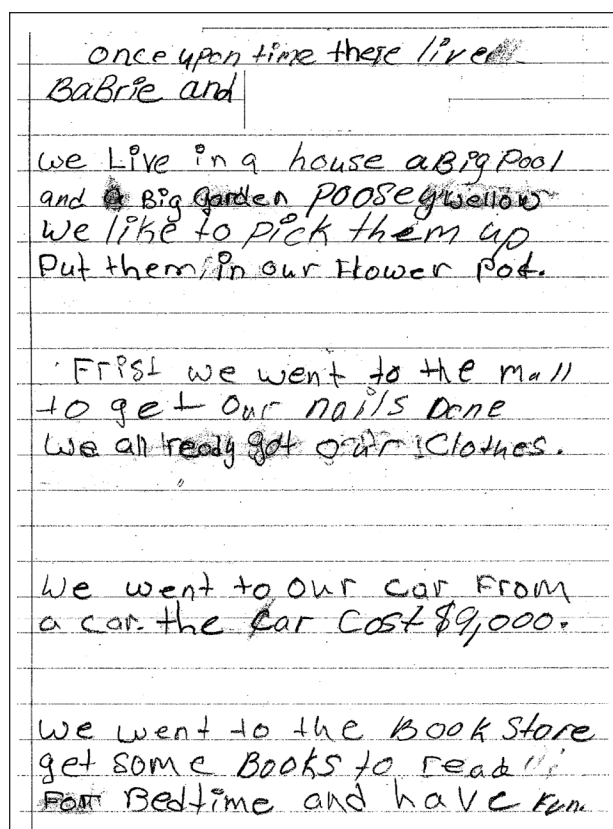 once upon time there live
BaBrie and
We Live in a house a Big Pool
and a Big Garden Poosey wellow
We like to pick them up
Put them in our Flower Pot.
Frist we went to the mall
to get our nails Done
We all ready got our Clothes.
We went to our car From
a car. the car Cost $9,000.
We went to the Book Store
get some Books to read
For Bedtime and have Fun.